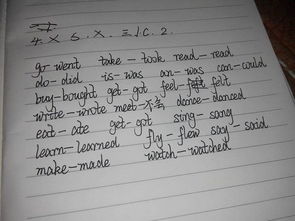 4. X 5. X. 三、1. C. 2.
go-went take-took read-read
do-did is-was am-was can-could
buy-bought get-got feel-felt
write-wrote meet-不会 dance-danced
eat-ate get-got sing-sang
learn-learned fly-flew say-said
make-made watch-watched